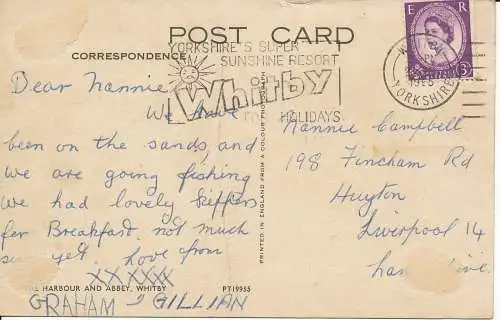 POST CARD
CORRESPONDENCE
E R
YORKSHIRE'S SUPER
SUNSHINE RESORT
Whitby
FOR HOLIDAYS
YORKSHIRE
Dear Nannie
We have
been on the sands, and
we are going fishing
we had lovely kippers
for Breakfast, not much
sun yet. Love from
XX XXXX
HARBOUR AND ABBEY, WHITBY
PT19955
GRAHAM & GILLIAN
PRINTED IN ENGLAND FROM A COLOUR PHOTOGRAPH
Nannie Campbell
198 Fincham Rd
Huyton
Liverpool 14